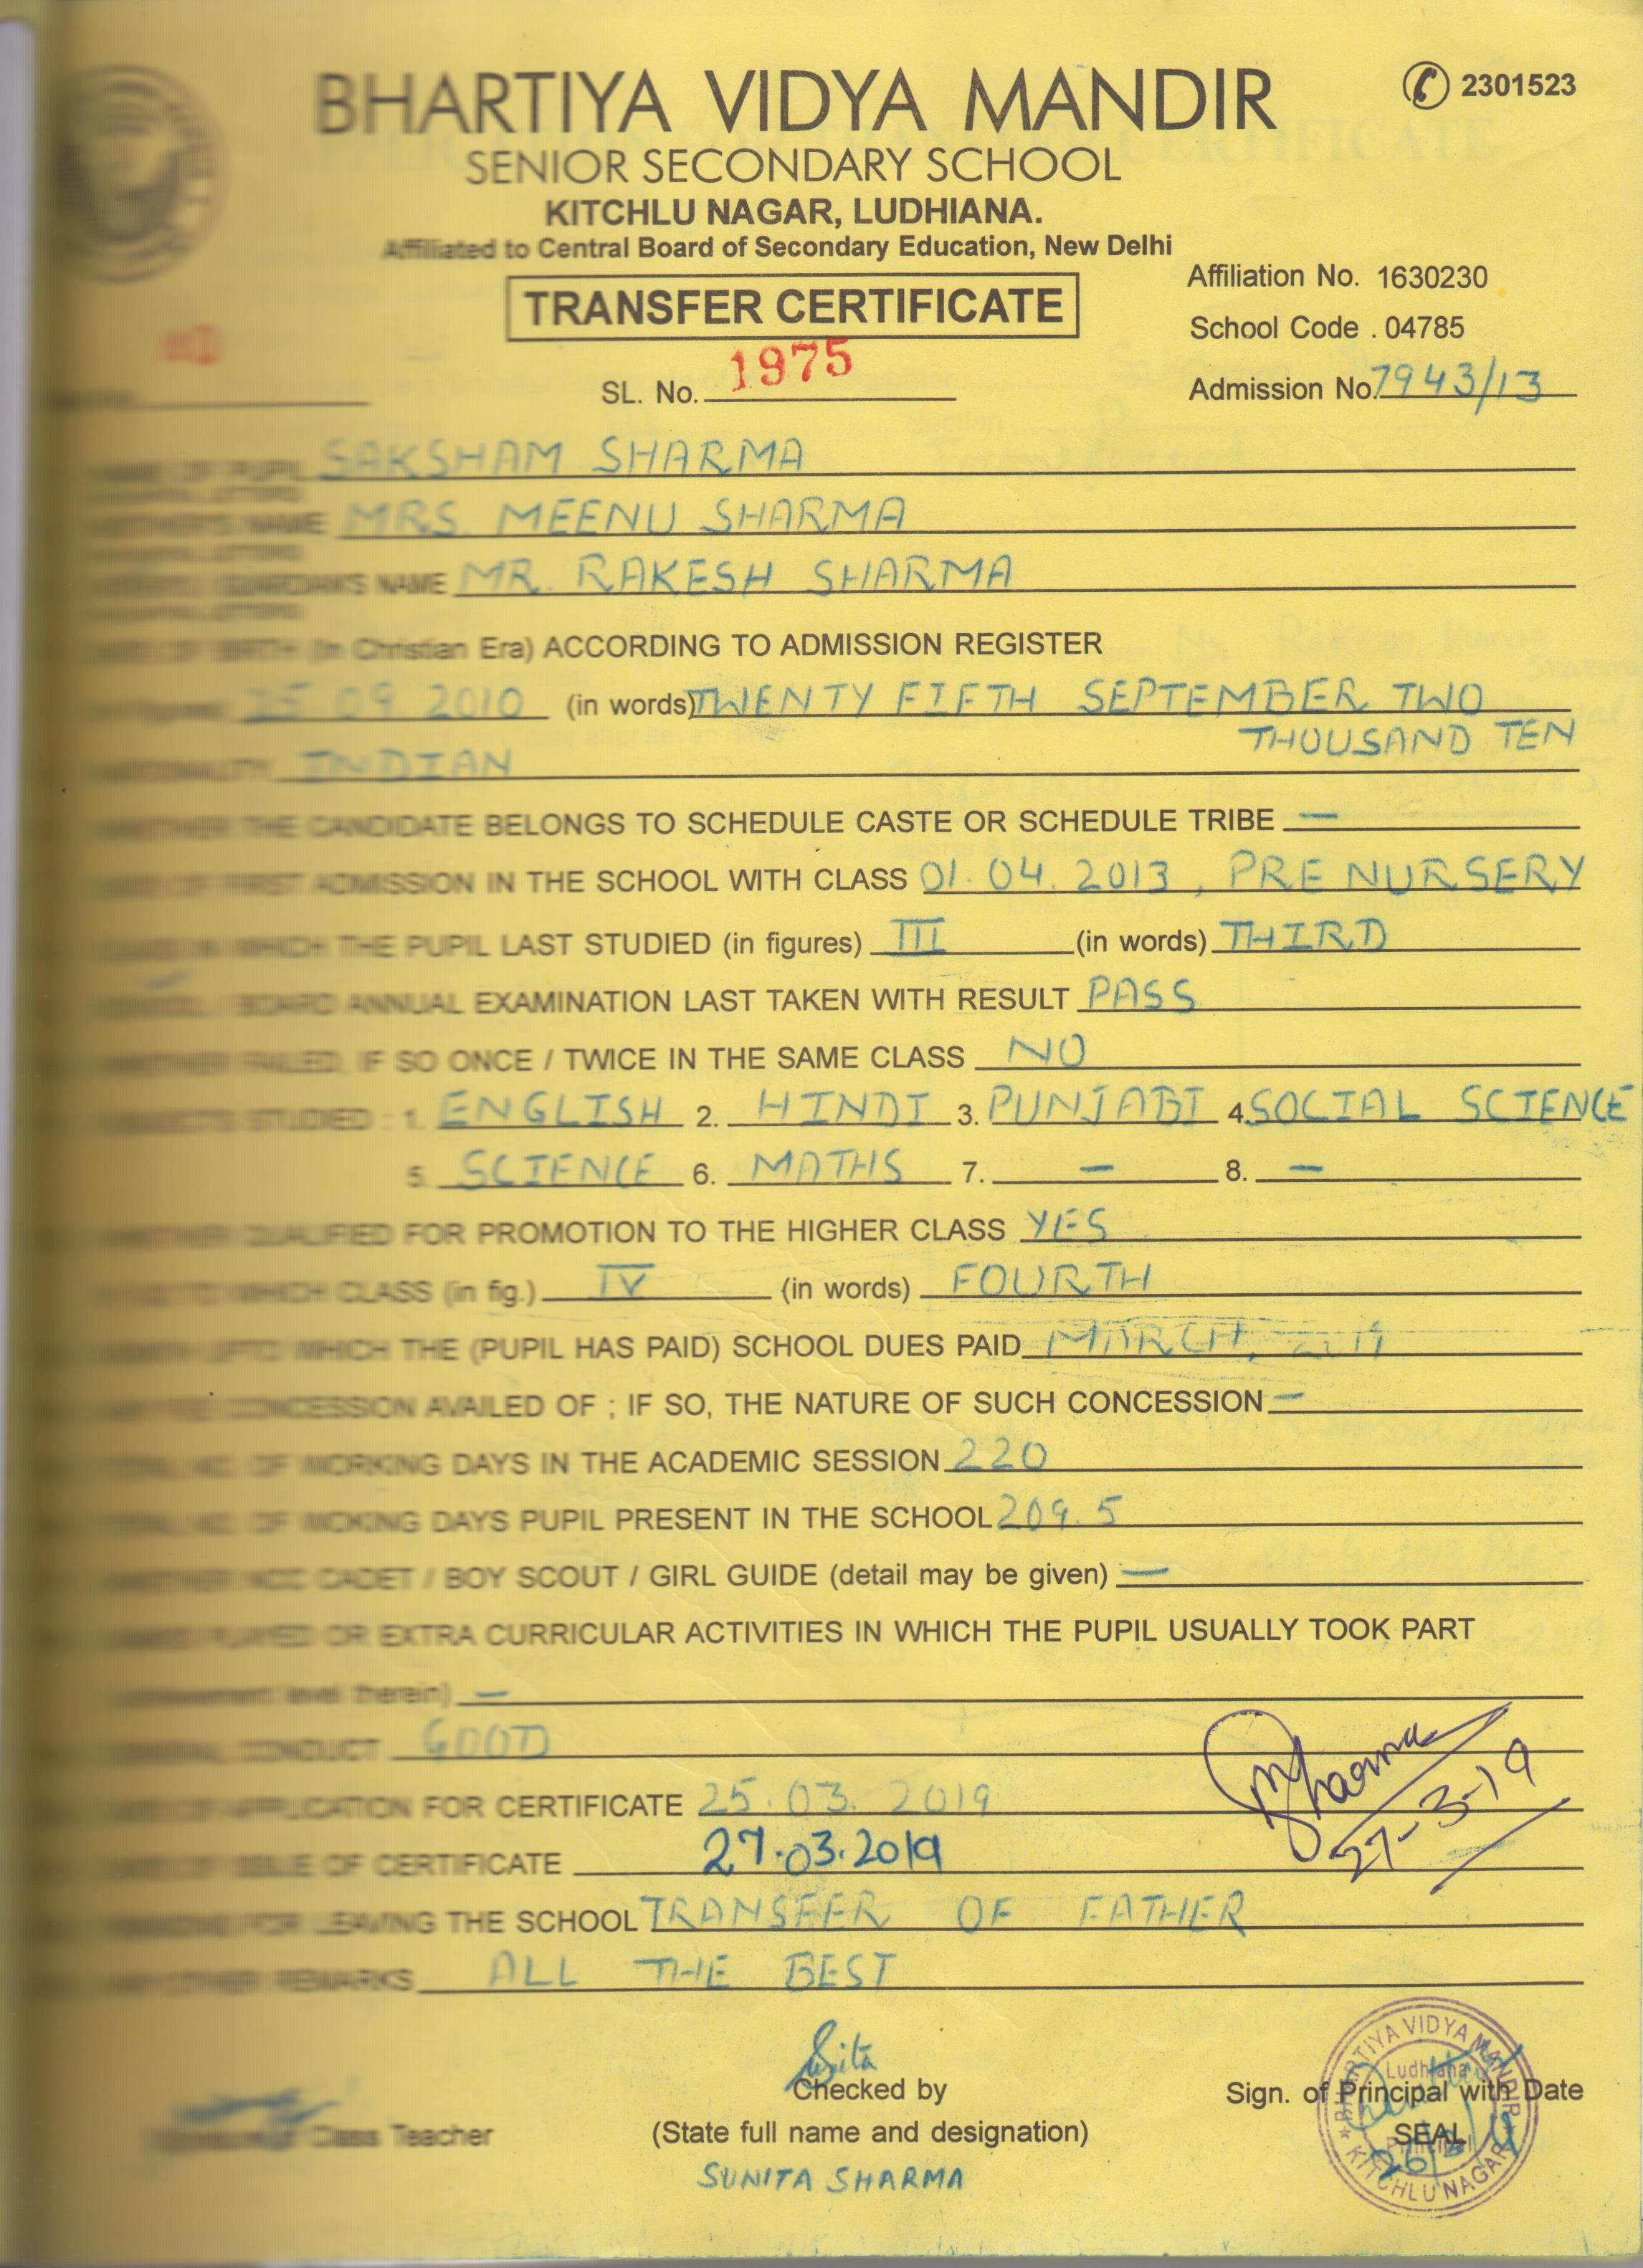 BHARTIYA VIDYA MANDIR
2301523
SENIOR SECONDARY SCHOOL
KITCHLU NAGAR, LUDHIANA.
Affiliated to Central Board of Secondary Education, New Delhi
Affiliation No. 1630230
TRANSFER CERTIFICATE
School Code . 04785
SL. No. 1975
Admission No. 7943/13
NAME OF PUPIL SAKSHAM SHARMA
MOTHER'S NAME MRS. MEENU SHARMA
GUARDIAN'S NAME MR. RAKESH SHARMA
DATE OF BIRTH (In Christian Era) ACCORDING TO ADMISSION REGISTER
25.09.2010 (in words) TWENTY FIFTH SEPTEMBER TWO
THOUSAND TEN
NATIONALITY INDIAN
WHETHER THE CANDIDATE BELONGS TO SCHEDULE CASTE OR SCHEDULE TRIBE —
DATE OF FIRST ADMISSION IN THE SCHOOL WITH CLASS 01.04.2013, PRE NURSERY
IN WHICH THE PUPIL LAST STUDIED (in figures) III (in words) THIRD
BOARD ANNUAL EXAMINATION LAST TAKEN WITH RESULT PASS
WHETHER FAILED, IF SO ONCE / TWICE IN THE SAME CLASS NO
SUBJECTS STUDIED : 1. ENGLISH 2. HINDI 3. PUNJABI 4. SOCIAL SCIENCE
5. SCIENCE 6. MATHS 7. — 8. —
WHETHER QUALIFIED FOR PROMOTION TO THE HIGHER CLASS YES
TO WHICH CLASS (in fig.) IV (in words) FOURTH
UPTO WHICH THE (PUPIL HAS PAID) SCHOOL DUES PAID MARCH, 2019
CONCESSION AVAILED OF ; IF SO, THE NATURE OF SUCH CONCESSION —
TOTAL NO. OF WORKING DAYS IN THE ACADEMIC SESSION 220
TOTAL NO. OF WOKING DAYS PUPIL PRESENT IN THE SCHOOL 209.5
WHETHER NCC CADET / BOY SCOUT / GIRL GUIDE (detail may be given) —
PLAYED OR EXTRA CURRICULAR ACTIVITIES IN WHICH THE PUPIL USUALLY TOOK PART
level therein) —
GENERAL CONDUCT GOOD
DATE OF APPLICATION FOR CERTIFICATE 25.03.2019
Sharma
27-3-19
DATE OF ISSUE OF CERTIFICATE 27.03.2019
FOR LEAVING THE SCHOOL TRANSFER OF FATHER
ANY OTHER REMARKS ALL THE BEST
Class Teacher
Sunita
Checked by
(State full name and designation)
SUNITA SHARMA
Sign. of Principal with Date
SEAL
BHARTIYA VIDYA MANDIR
KITCHLU NAGAR
Ludhiana
Principal